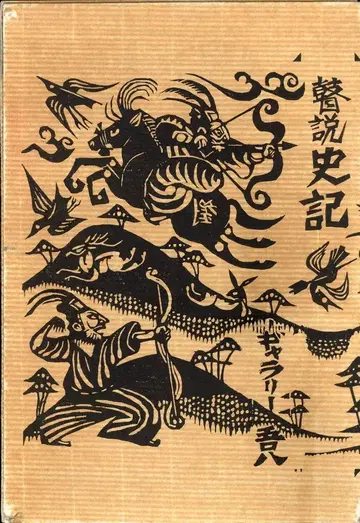 瞽説史記
ギャラリー吾八